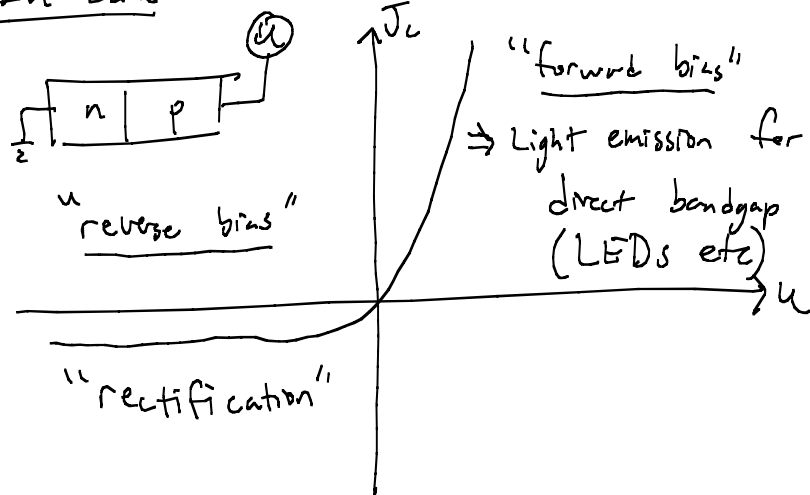 U
J
n p
"forward bias"
⇒ Light emission for
direct bandgap
(LEDs etc)
"reverse bias"
U
"rectification"